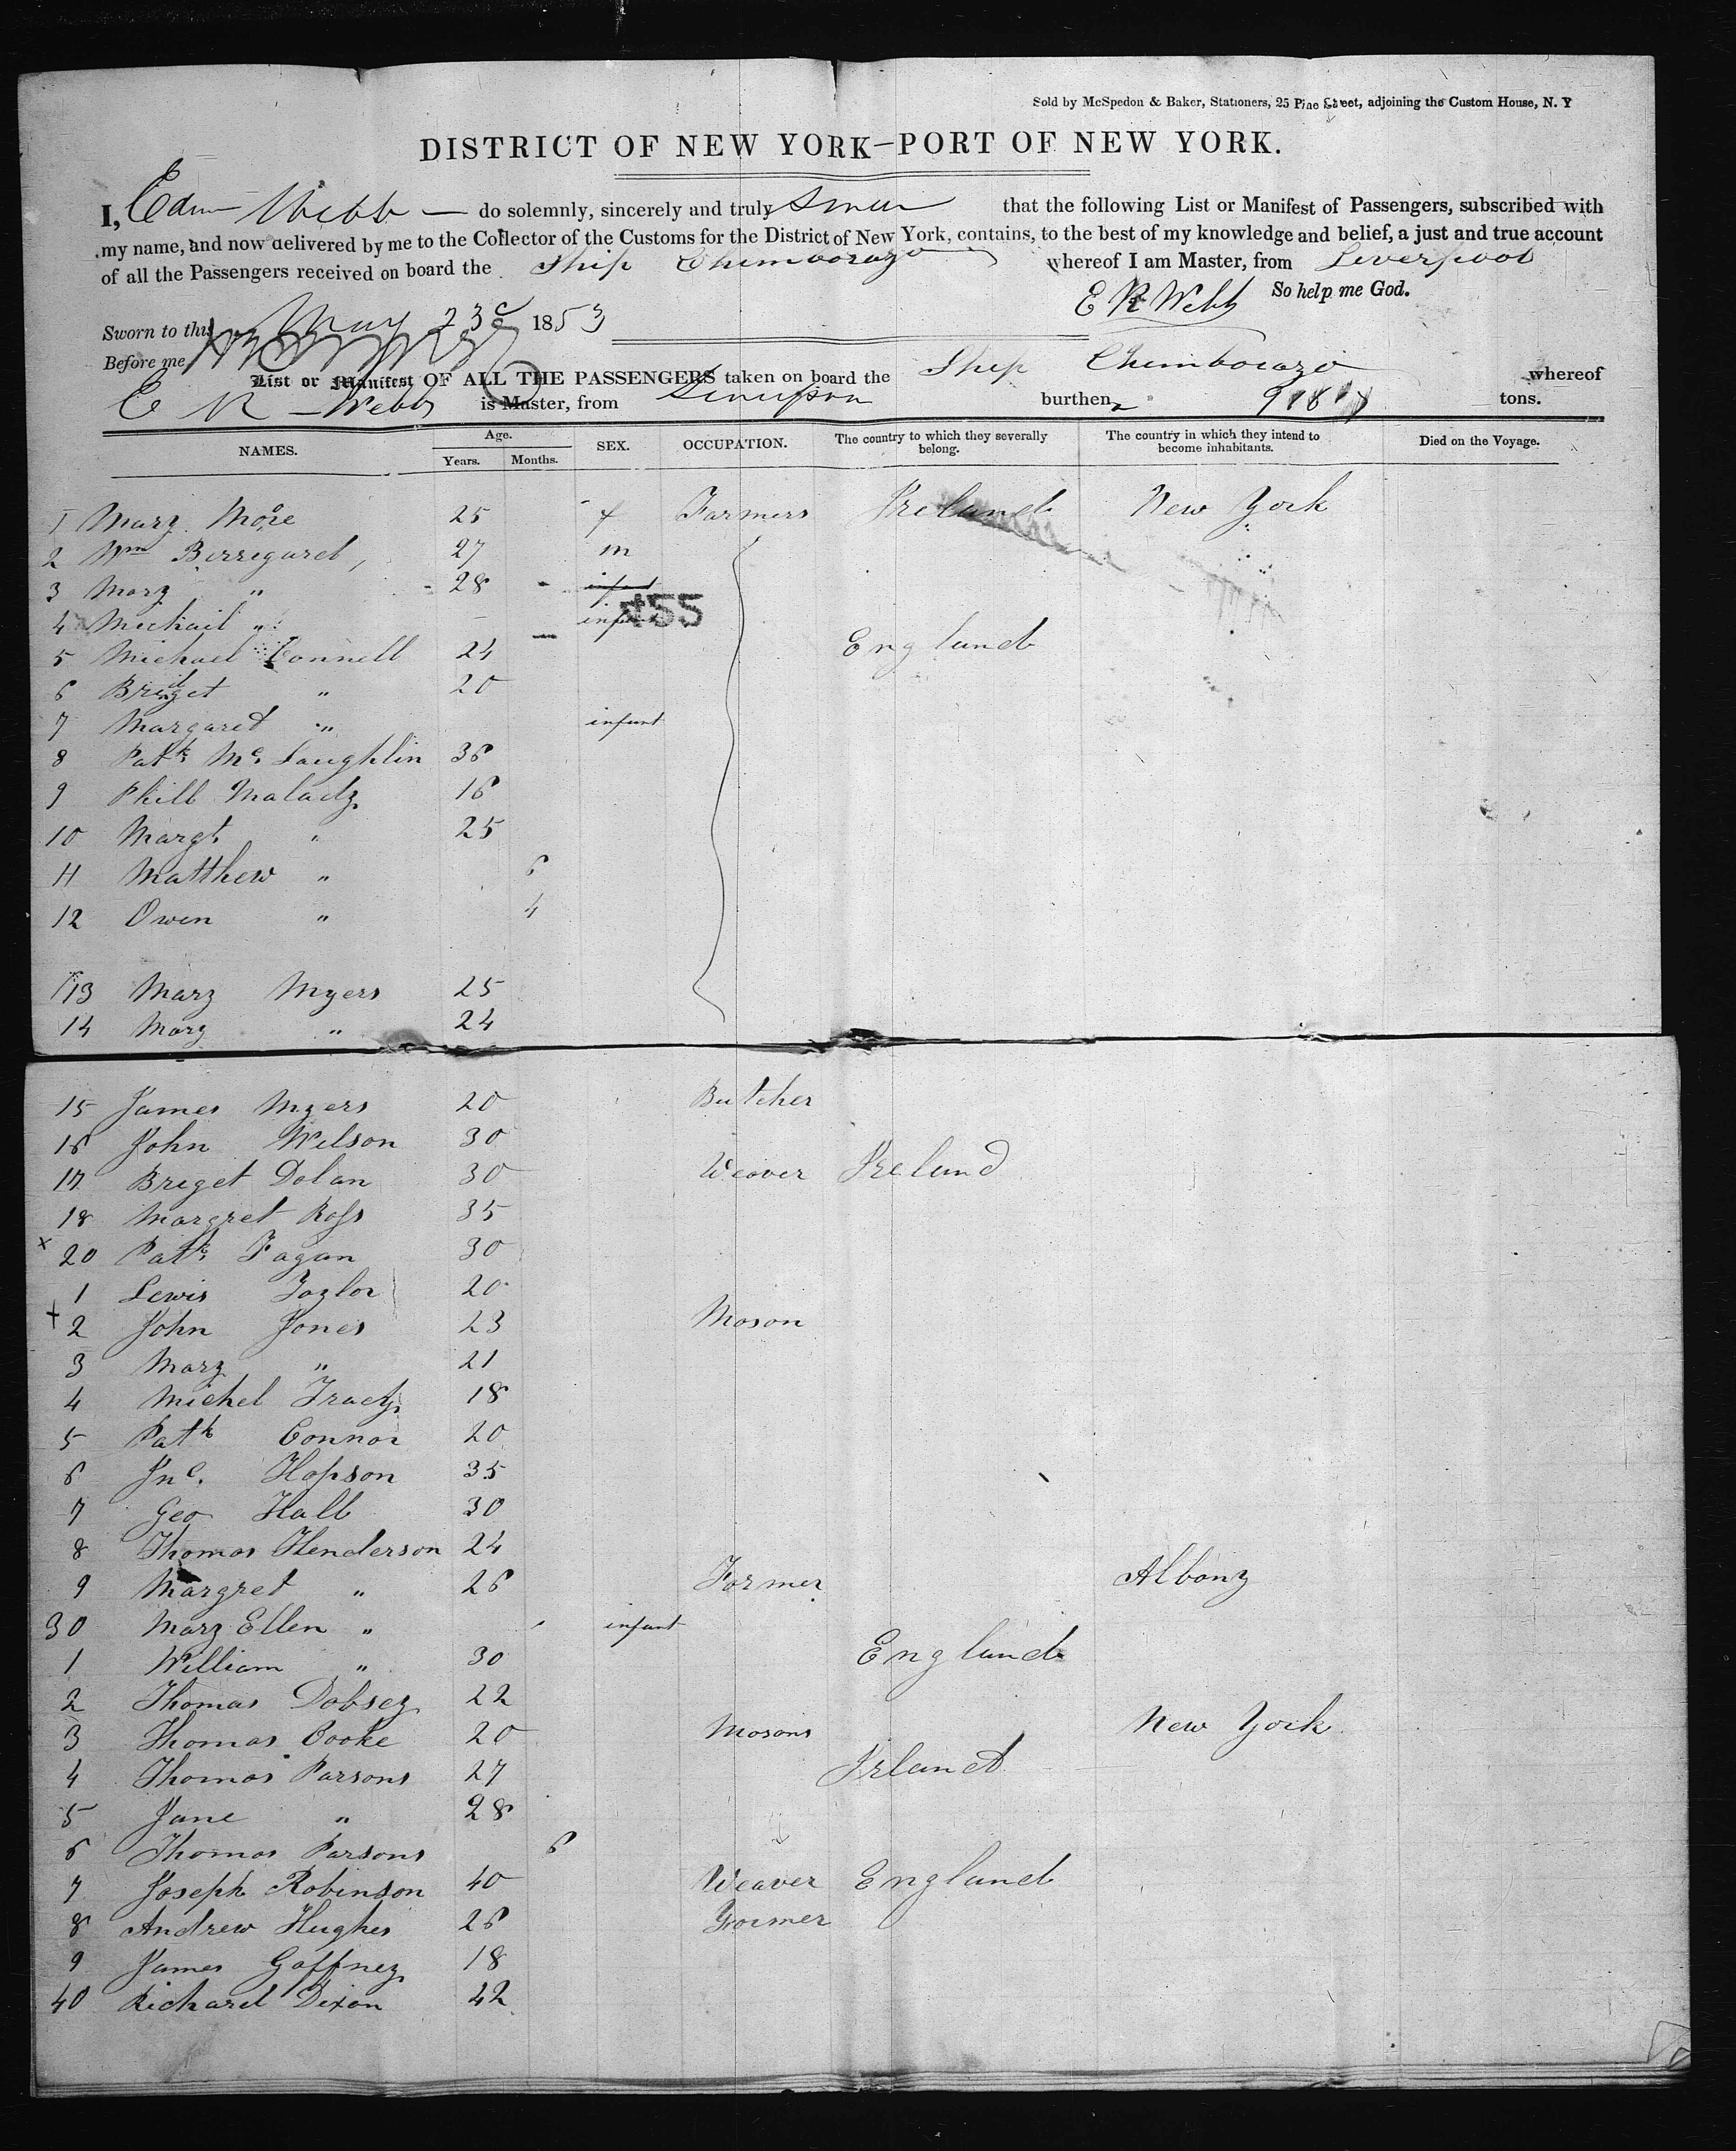 Sold by McSpedon & Baker, Stationers, 25 Pine Street, adjoining the Custom House, N. Y
DISTRICT OF NEW YORK—PORT OF NEW YORK.
I, Edwn Webb — do solemnly, sincerely and truly Swear that the following List or Manifest of Passengers, subscribed with
my name, and now delivered by me to the Collector of the Customs for the District of New York, contains, to the best of my knowledge and belief, a just and true account
of all the Passengers received on board the Ship Chimborazo whereof I am Master, from Liverpool
E R Webb So help me God.
Sworn to this May 23d 1853
Before me
List or Manifest OF ALL THE PASSENGERS taken on board the Ship Chimborazo whereof
E R Webb is Master, from burthen tons.
NAMES. Age. Years. Months. SEX. OCCUPATION. The country to which they severally belong. The country in which they intend to become inhabitants. Died on the Voyage.
1 Mary More 25 f Farmers Ireland New York
2 Wm Berregard, 27 m
3 Mary " 28
455
4 Michail " infant
5 Michael Connell 24 England
6 Bridget " 20
7 Margaret " infant
8 Patk Mc Laughlin 36
9 Phill Malady 16
10 Margt " 25
11 Matthew " 6
12 Owen " 4
13 Mary Myers 25
14 Mary " 24
15 James Myers 20 Butcher
16 John Wilson 30
17 Breget Dolan 30 Weaver Ireland
18 Margret Ross 35
x 20 Patk Fagan 30
1 Lewis Taylor 20
+ 2 John Jones 23 Mason
3 Mary " 21
4 Michel Tracy 18
5 Patk Connor 20
6 Jno. Hopson 35
7 Geo Hall 30
8 Thomas Henderson 24
9 Margret " 26 Farmer Albany
30 Mary Ellen " infant
1 William " 30 England
2 Thomas Dobsey 22
3 Thomas Cooke 20 Masons New York
4 Thomas Parsons 27 Irland
5 Jane " 28
6 Thomas Parsons 6
7 Joseph Robinson 40 Weaver England
8 Andrew Hughes 26 Farmer
9 James Gaffney 18
40 Richard Dixon 42